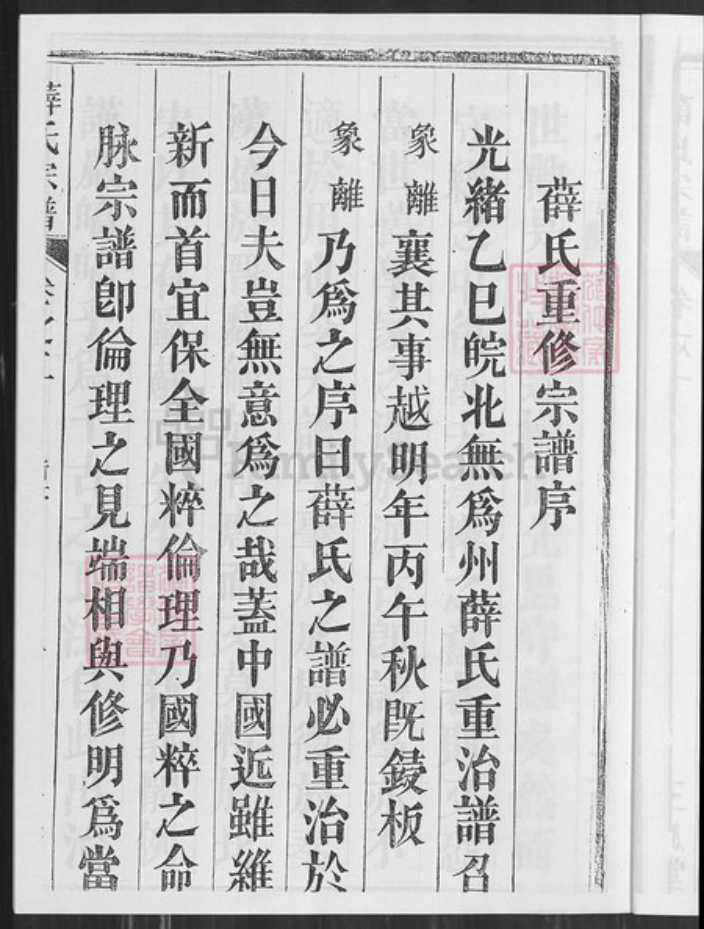 薛氏重修宗譜序
光緒乙巳皖北無爲州薛氏重治譜召
象離襄其事越明年丙午秋既鋟板
象離乃爲之序曰薛氏之譜必重治於
今日夫豈無意爲之哉蓋中國近雖維
新而首宜保全國粹倫理乃國粹之命
脉宗譜卽倫理之見端相與修明爲當
薛氏宗譜
FamilySearch